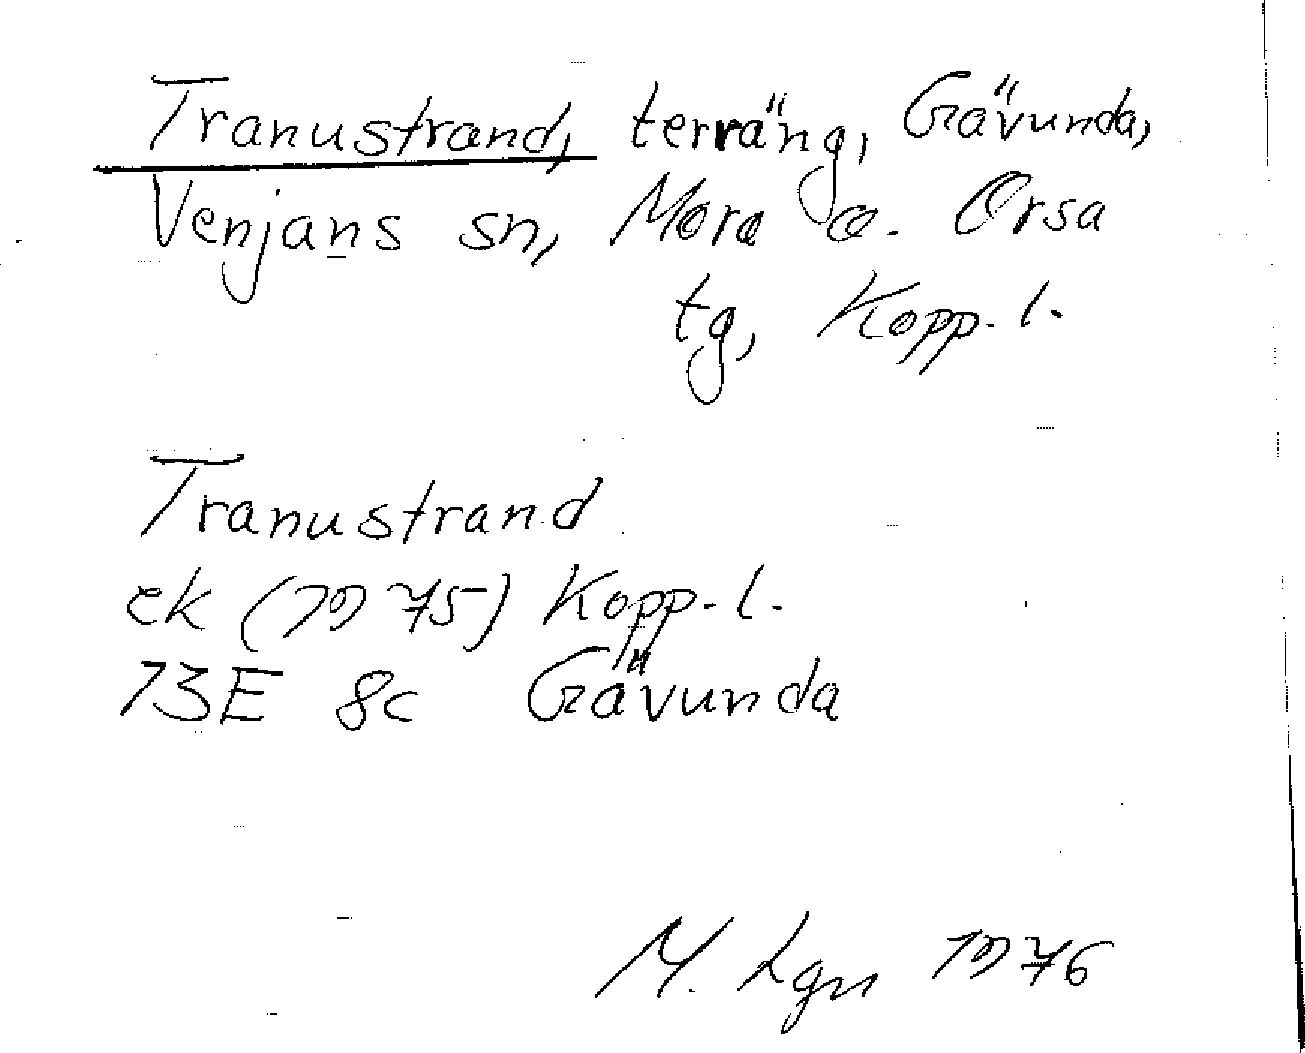 Tranustrand, terräng, Gävunda,
Venjans sn, Mora o. Orsa
tg, Kopp. l.
Tranustrand
ek (1975) Kopp. l.
13E 8c Gävunda
M. Lgn 1976